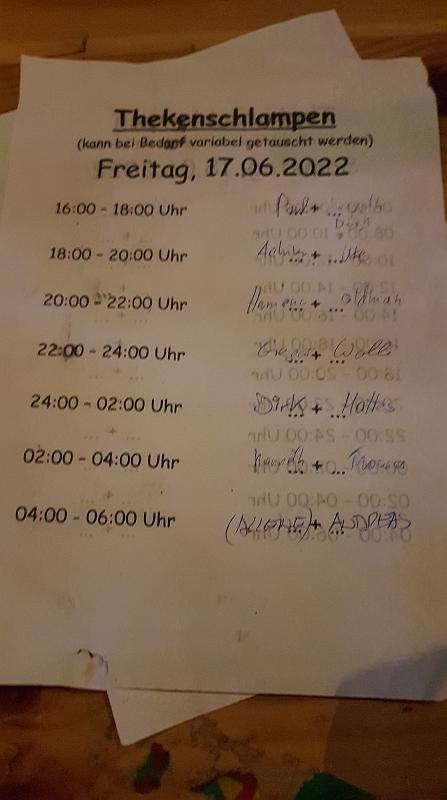 Thekenschlampen
(kann bei Bedarf variabel getauscht werden)
Freitag, 17.06.2022
16:00 - 18:00 Uhr Paul + ...
18:00 - 20:00 Uhr + ... Ute
20:00 - 22:00 Uhr + ...
22:00 - 24:00 Uhr + Wolle
24:00 - 02:00 Uhr Dirk + ...
02:00 - 04:00 Uhr + ... Thomas
04:00 - 06:00 Uhr (ALLEINE) + ANDREAS